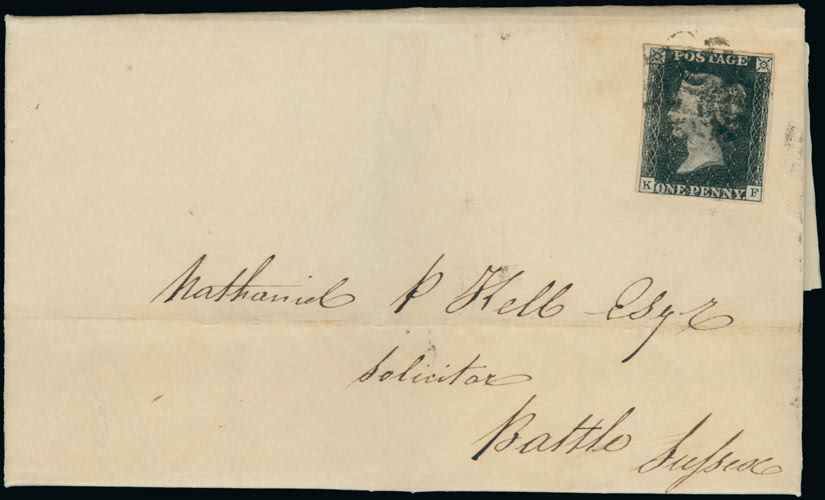 POSTAGE
ONE PENNY.
K F
Nathaniel P Kell Esqr
Solicitor
Battle Sussex